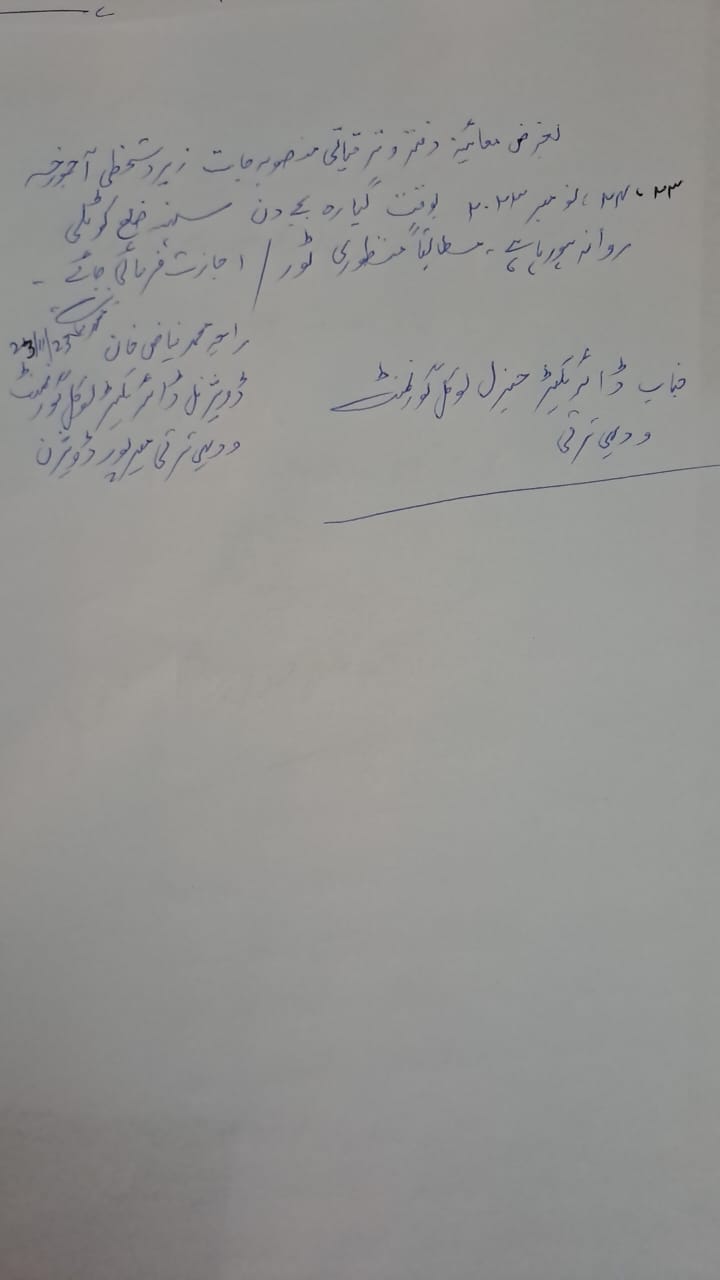 بغرض معائنہ دفتر و ترقیاتی منصوبہ جات زیر دستخطی آجمورخہ
۲۳، ۲۴، نومبر ۲۰۲۳ بوقت گیارہ بجے دن سہنسہ ضلع کوٹلی
روانہ ہو رہا ہے۔ مطابقاً منظوری ٹور / اجازت فرمائی جائے ۔
راجہ محمد ریاض خان 23/11/23
ڈویژنل ڈائریکٹر لوکل گورنمنٹ
و دیہی ترقی میرپور ڈویژن
جناب ڈائریکٹر جنرل لوکل گورنمنٹ
و دیہی ترقی